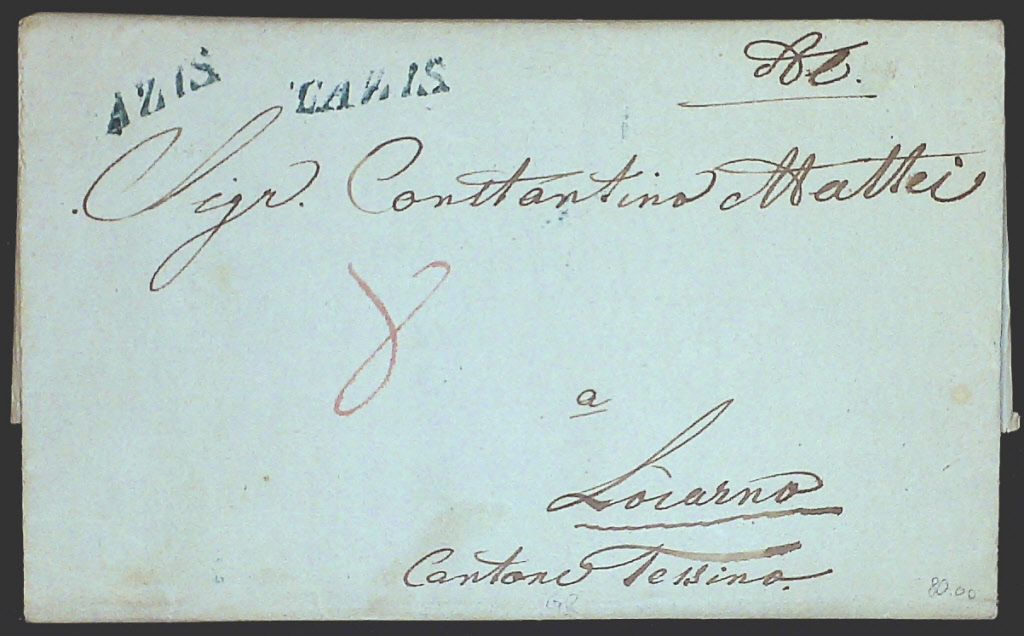 AZIS CAZIS
Sigr. Constantino Mattei
8
a
Locarno
Cantone Tessino.
80.00